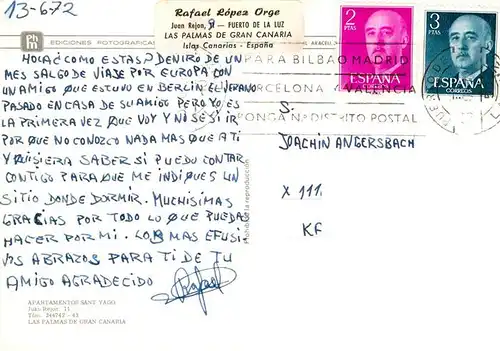 13-6-72
Rafael López Orge
Juan Rejon, 9 - PUERTO DE LA LUZ
LAS PALMAS DE GRAN CANARIA
Islas Canarias - España
EDICIONES FOTOGRAFICAS
HOLA¿COMO ESTAS? DENTRO DE UN
MES SALGO DE VIAJE POR EUROPA CON
UN AMIGO QUE ESTUVO EN BERLIN EL VERANO
PASADO EN CASA DE SU AMIGO PERO YO ES
LA PRIMERA VEZ QUE VOY Y NO SE SI IR
POR QUE NO CONOZCO NADA MAS QUE A TI
Y QUISIERA SABER SI PUEDO CONTAR
CONTIGO PARA QUE ME INDIQUES UN
SITIO DONDE DORMIR. MUCHISIMAS
GRACIAS POR TODO LO QUE PUEDAS
HACER POR MI. LOS MAS EFUSI
VOS ABRAZOS PARA TI DE TU
AMIGO AGRADECIDO
Rafael
APARTAMENTOS SANT YAGO
Juan Rejón, 11
Tfno. 244742 - 43
LAS PALMAS DE GRAN CANARIA
Prohibida la reproducción
2
PTAS
ESPAÑA
CORREOS
3
PTAS
ESPAÑA
CORREOS
PARA BILBAO MADRID
BARCELONA VALENCIA
PONGA Nº DISTRITO POSTAL
S:
JOACHIN ANGERSBACH
X 111
KF